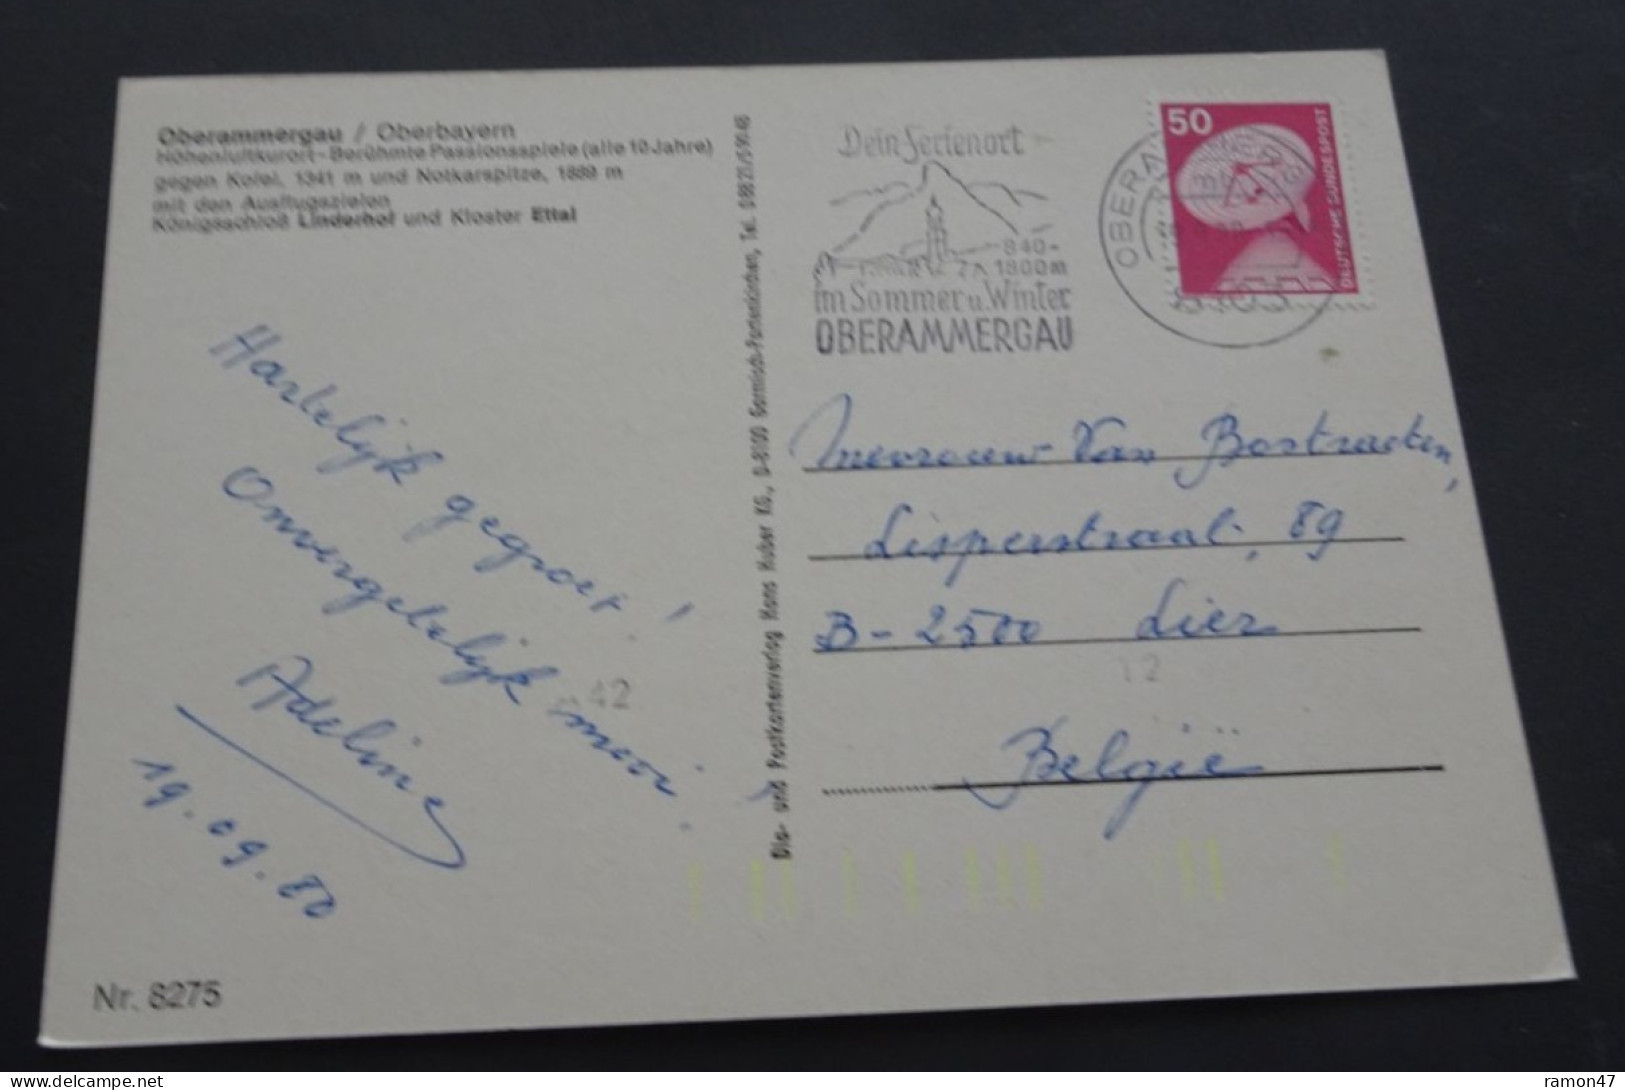 Oberammergau / Oberbayern
Höhenluftkurort - Berühmte Passionsspiele (alle 10 Jahre)
gegen Kofel, 1341 m und Notkarspitze, 1889 m
mit den Ausflugszielen
Königsschloß Linderhof und Kloster Ettal
Hartelijk gegroet!
Onvergetelijk mooi
Adeline
19.09.80
Nr. 8275
Dia- und Postkartenverlag Hans Huber KG., D-8100 Garmisch-Partenkirchen, Tel. 08821/59146
Dein Ferienort
840-
1800m
im Sommer u. Winter
OBERAMMERGAU
OBERAM
50
DEUTSCHE BUNDESPOST
Mevrouw Van Bostraeten,
Lisperstraat, 89
B-2500 Lier
België
42
12
ramon47